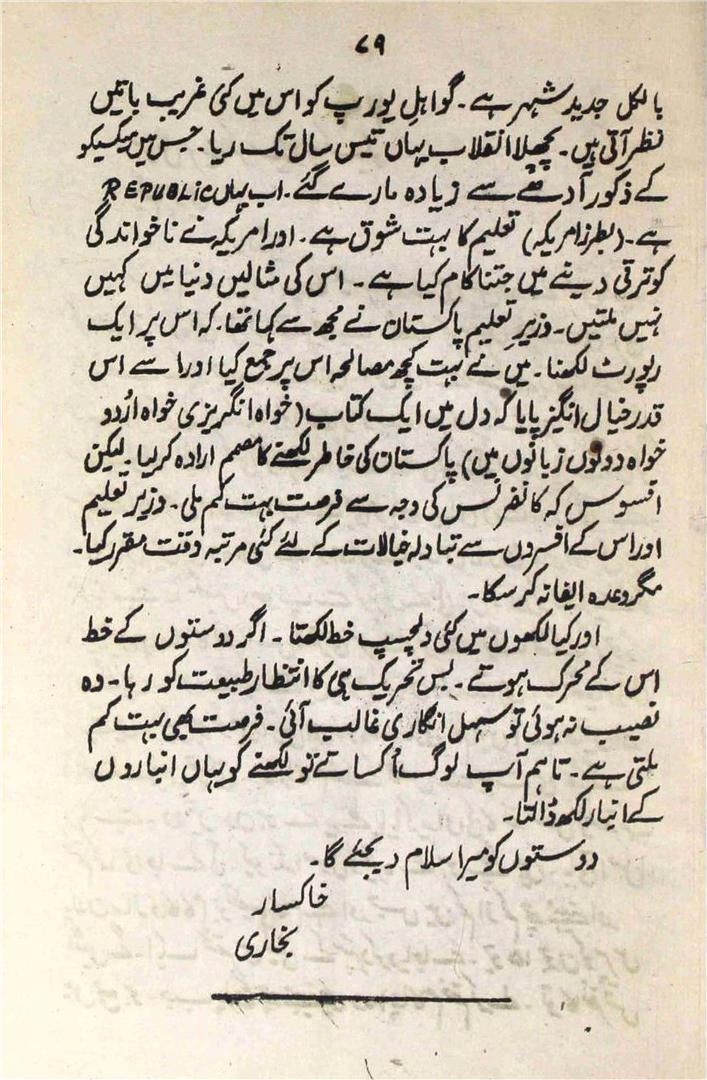 ۷۹
بالکل جدید شہر ہے۔ گو اہلِ یورپ کو اس میں کئی غریب باتیں
نظر آتی ہیں۔ پچھلا انقلاب یہاں تیس سال تک رہا۔ جس میں میکسیکو
کے ذکور آدھے سے زیادہ مارے گئے۔ اب یہاں REPUBLIC
ہے۔ (بطرز امریکہ) تعلیم کا بہت شوق ہے۔ اور امریکہ نے ناخواندگی
کو ترقی دینے میں جتنا کام کیا ہے۔ اس کی مثالیں دنیا میں کہیں
نہیں ملتیں۔ وزیرِ تعلیم پاکستان نے مجھ سے کہا تھا۔ کہ اس پر ایک
رپورٹ لکھنا۔ میں نے بہت کچھ مصالحہ اس پر جمع کیا اور اسے اس
قدر خیال انگیز پایا کہ دل میں ایک کتاب (خواہ انگریزی خواہ اُردو
خواہ دونوں زبانوں میں) پاکستان کی خاطر لکھنے کا مصمم ارادہ کر لیا۔ لیکن
افسوس کہ کانفرنس کی وجہ سے فرصت بہت کم ملی۔ وزیر تعلیم
اور اس کے افسروں سے تبادلہ خیالات کے لئے کئی مرتبہ وقت مقرر کیا۔
مگر وعدہ ایفا نہ کر سکا۔
اور کیا لکھوں میں کئی دلچسپ خط لکھتا۔ اگر دوستوں کے خط
اس کے محرک ہوتے۔ بس تحریک ہی کا انتظار طبیعت کو رہا۔ وہ
نصیب نہ ہوئی تو سہل انگاری غالب آئی۔ فرصت بھی بہت کم
ملتی ہے۔ تاہم آپ لوگ اُکساتے تو لکھنے کو یہاں انباروں
کے انبار لکھ ڈالتا۔
دوستوں کو میرا سلام دیجئے گا۔
خاکسار
بخاری